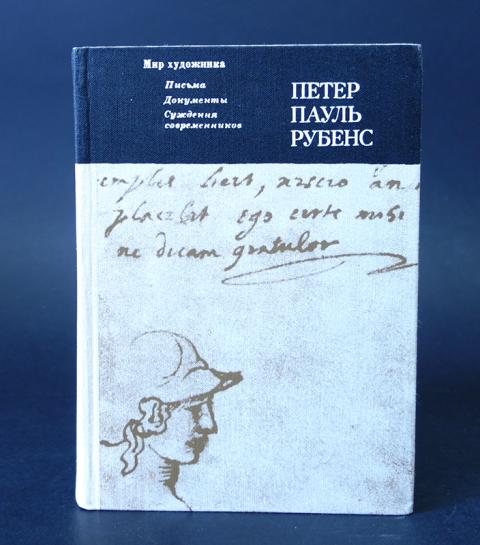 Мир художника
Письма
Документы
Суждения
современников
ПЕТЕР
ПАУЛЬ
РУБЕНС
ego
ne dicam gratulor